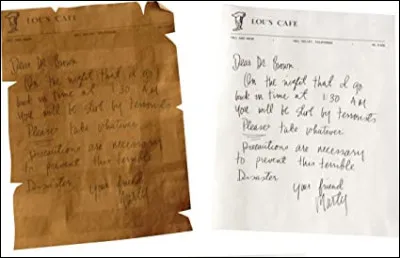 LOU'S CAFE
Dear Dr. Brown,
On the night that I go
back in time at 1:30 AM
You will be shot by terrorists
Please take whatever
precautions are necessary
to prevent this terrible
Disaster
Your friend
Marty
LOU'S CAFE
Dear Dr. Brown,
On the night that I go
back in time at 1:30 AM
You will be shot by terrorists
Please take whatever
precautions are necessary
to prevent this terrible
Disaster
Your friend
Marty